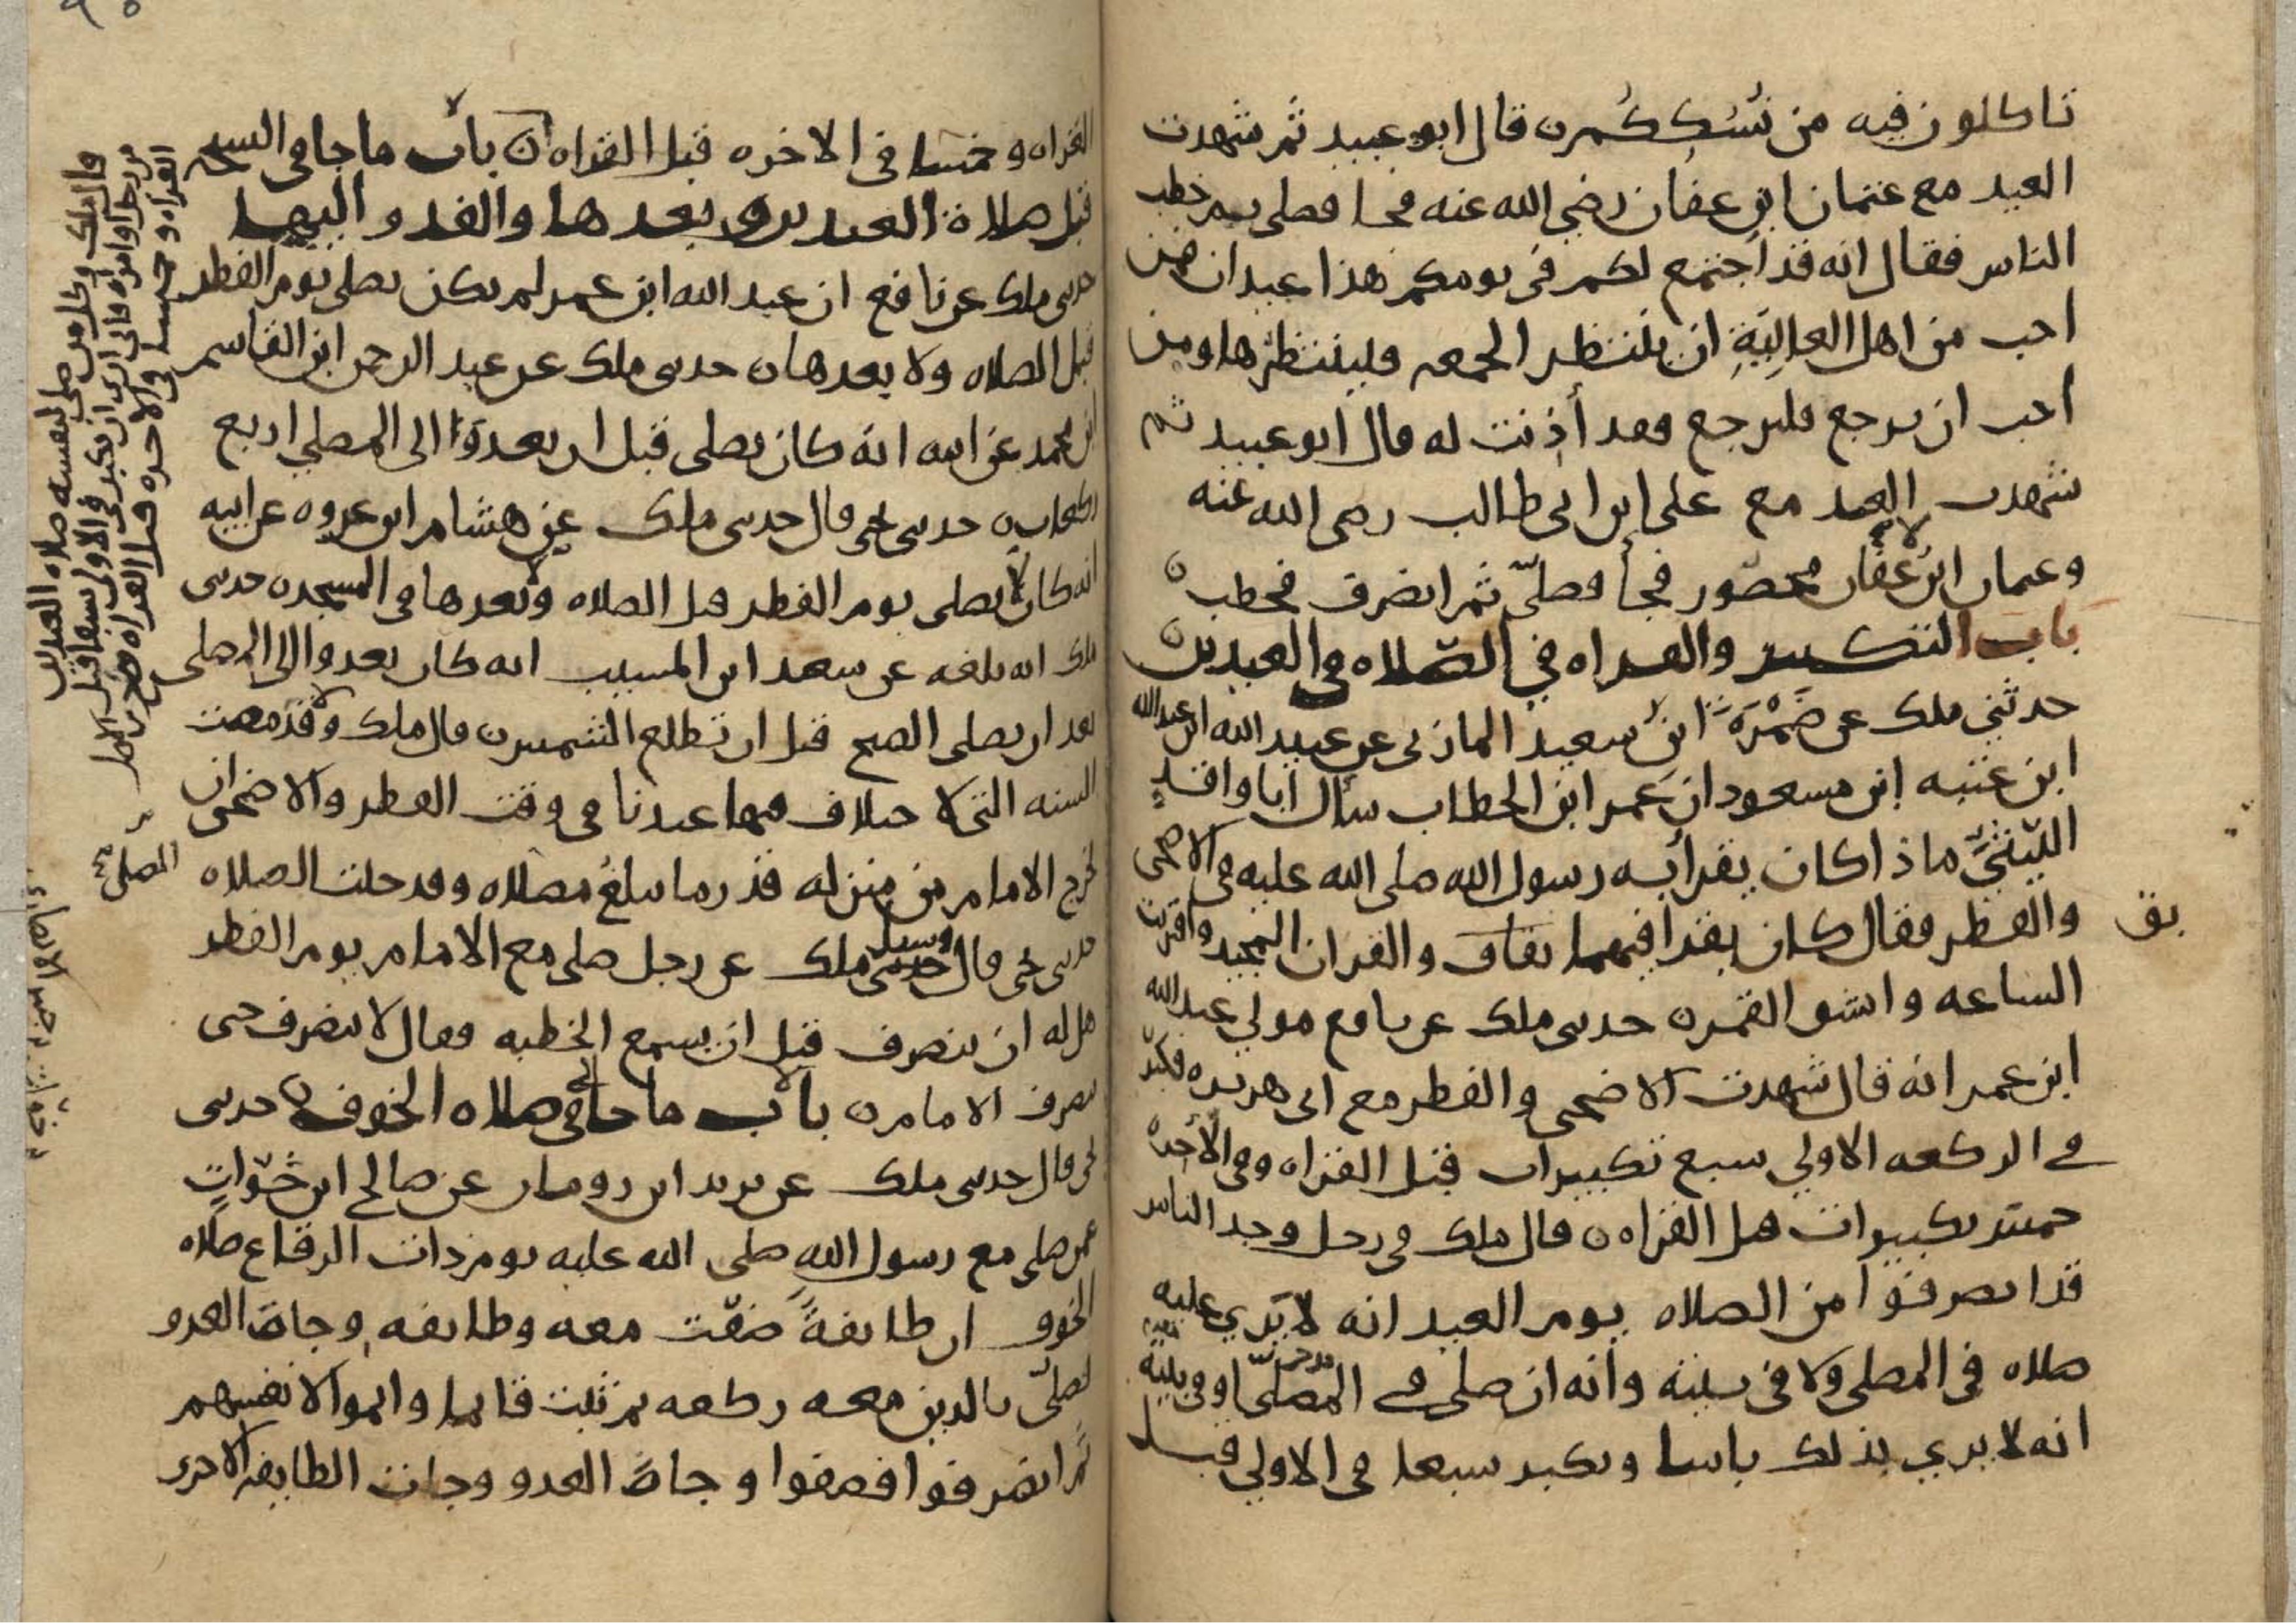 تاكلون فيه من نُسُككُم ن قال ابو عبيد ثم شهدت
العيد مع عثمان ابن عفان رضي الله عنه فجا فصلى ثم خطب
الناس فقال انه قد اجتمع لكم في يومكم هذا عيدان فمن
احب من اهل العالِيَةِ ان ينتظر الجمعه فلينتظرها ومن
احب ان يرجع فليرجع فقد أذِنت له قال ابو عبيد ثم
شهدت العيد مع علي ابن ابي طالب رضي الله عنه
وعثمان ابن عفان محصور فجأ فصلىّ ثم انصرف فخطب ن
باب التكبير والقراه في الصلاه في العيدين
حدثني ملك عن ضَمْرَةَ ابن سعيد المازني عن عبيد الله ابن عبد الله
ابن عتبه ابن مسعود ان عمر ابن الخطاب سأل ابا واقدٍ
الليثيَّ ماذا كان يقرأ به رسول الله صلى الله عليه في الاضحى
والفطر فقال كان يقرا فيهما بقاف والقران المجيد واقتربت
بق
الساعه وانشق القمر ن حدثني ملك عن نافع مولي عبد الله
ابن عمر انه قال شهدت الاضحى والفطر مع ابي هريره فكبّر
في الركعه الاولي سبع تكبيرات قبل القراه وفي الآخره
خمس تكبيرات قبل القراه ن قال ملك في رجل وجد الناس
قد انصرفوا من الصلاه يوم العيد انه لا يَري عليه
صلاه في المصلى ولا في بيته وأنه ان صلى في المصلىّ او في بيته
انه لا يري بذلك باسا ويكبر سبعا في الاولي قبل
القراه وخمسا في الاخره قبل القراه ن باب ما جا في السبحه
قبل صلاة العيدين وبعدها والغدو اليهما
حدثني ملك عن نافع ان عبد الله ابن عمر لم يكن يصلي يوم الفطر
قبل الصلاه ولا بعدها ن حدثني ملك عن عبد الرحمن ابن القاسم
ابن محمد عن ابيه انه كان يصلى قبل ان يغدوَا الى المصلي اربع
ركعات ن حدثني يحيى قال حدثني ملك عن هشام ابن عروه عن ابيه
انه كان لا يصلى يوم الفطر قبل الصلاه ولا بعدها في المسجد ن حدثني
ملك انه بلغه عن سعيد ابن المسيب انه كان يغدوا الى المصلى
بعد ان يصلى الصبح قبل ان تطلع الشمس ن قال ملك وقد مضت
السنه التي لا خلاف فيها عندنا في وقت الفطر والاضحى ان
يخرج الامام من منزله قدر ما يبلغُ مصلاه وقد حلت الصلاه
حدثني يحيى قال وسيل ملك عن رجل صلى مع الامام يوم الفطر
هل له ان ينصرف قبل ان يسمع الخطبه فقال لا ينصرف حتى
ينصرف الامام ن باب ما جا في صلاه الخوف ن حدثني
يحيى قال حدثني ملك عن يزيد ابن رومان عن صالح ابن خَوّاتٍ
عمن صلى مع رسول الله صلى الله عليه يوم ذات الرقاع صلاه
الخوف ان طايفةً صَفّت معه وطايفه وجاهَ العدو
فصلىّ بالذين معه ركعه ثم ثبت قايما واتموا لانفسهم
ثم انصرفوا فصفوا وجاهَ العدو وجات الطايفه الاخرى
قال ملك وكل من صلى لنفسه صلاه العيدين
من رجل او امراه فاني ارى ان يكبر في الاولى سبعا قبل
القراه وخمسا في الاخره قبل القراه
المصلى